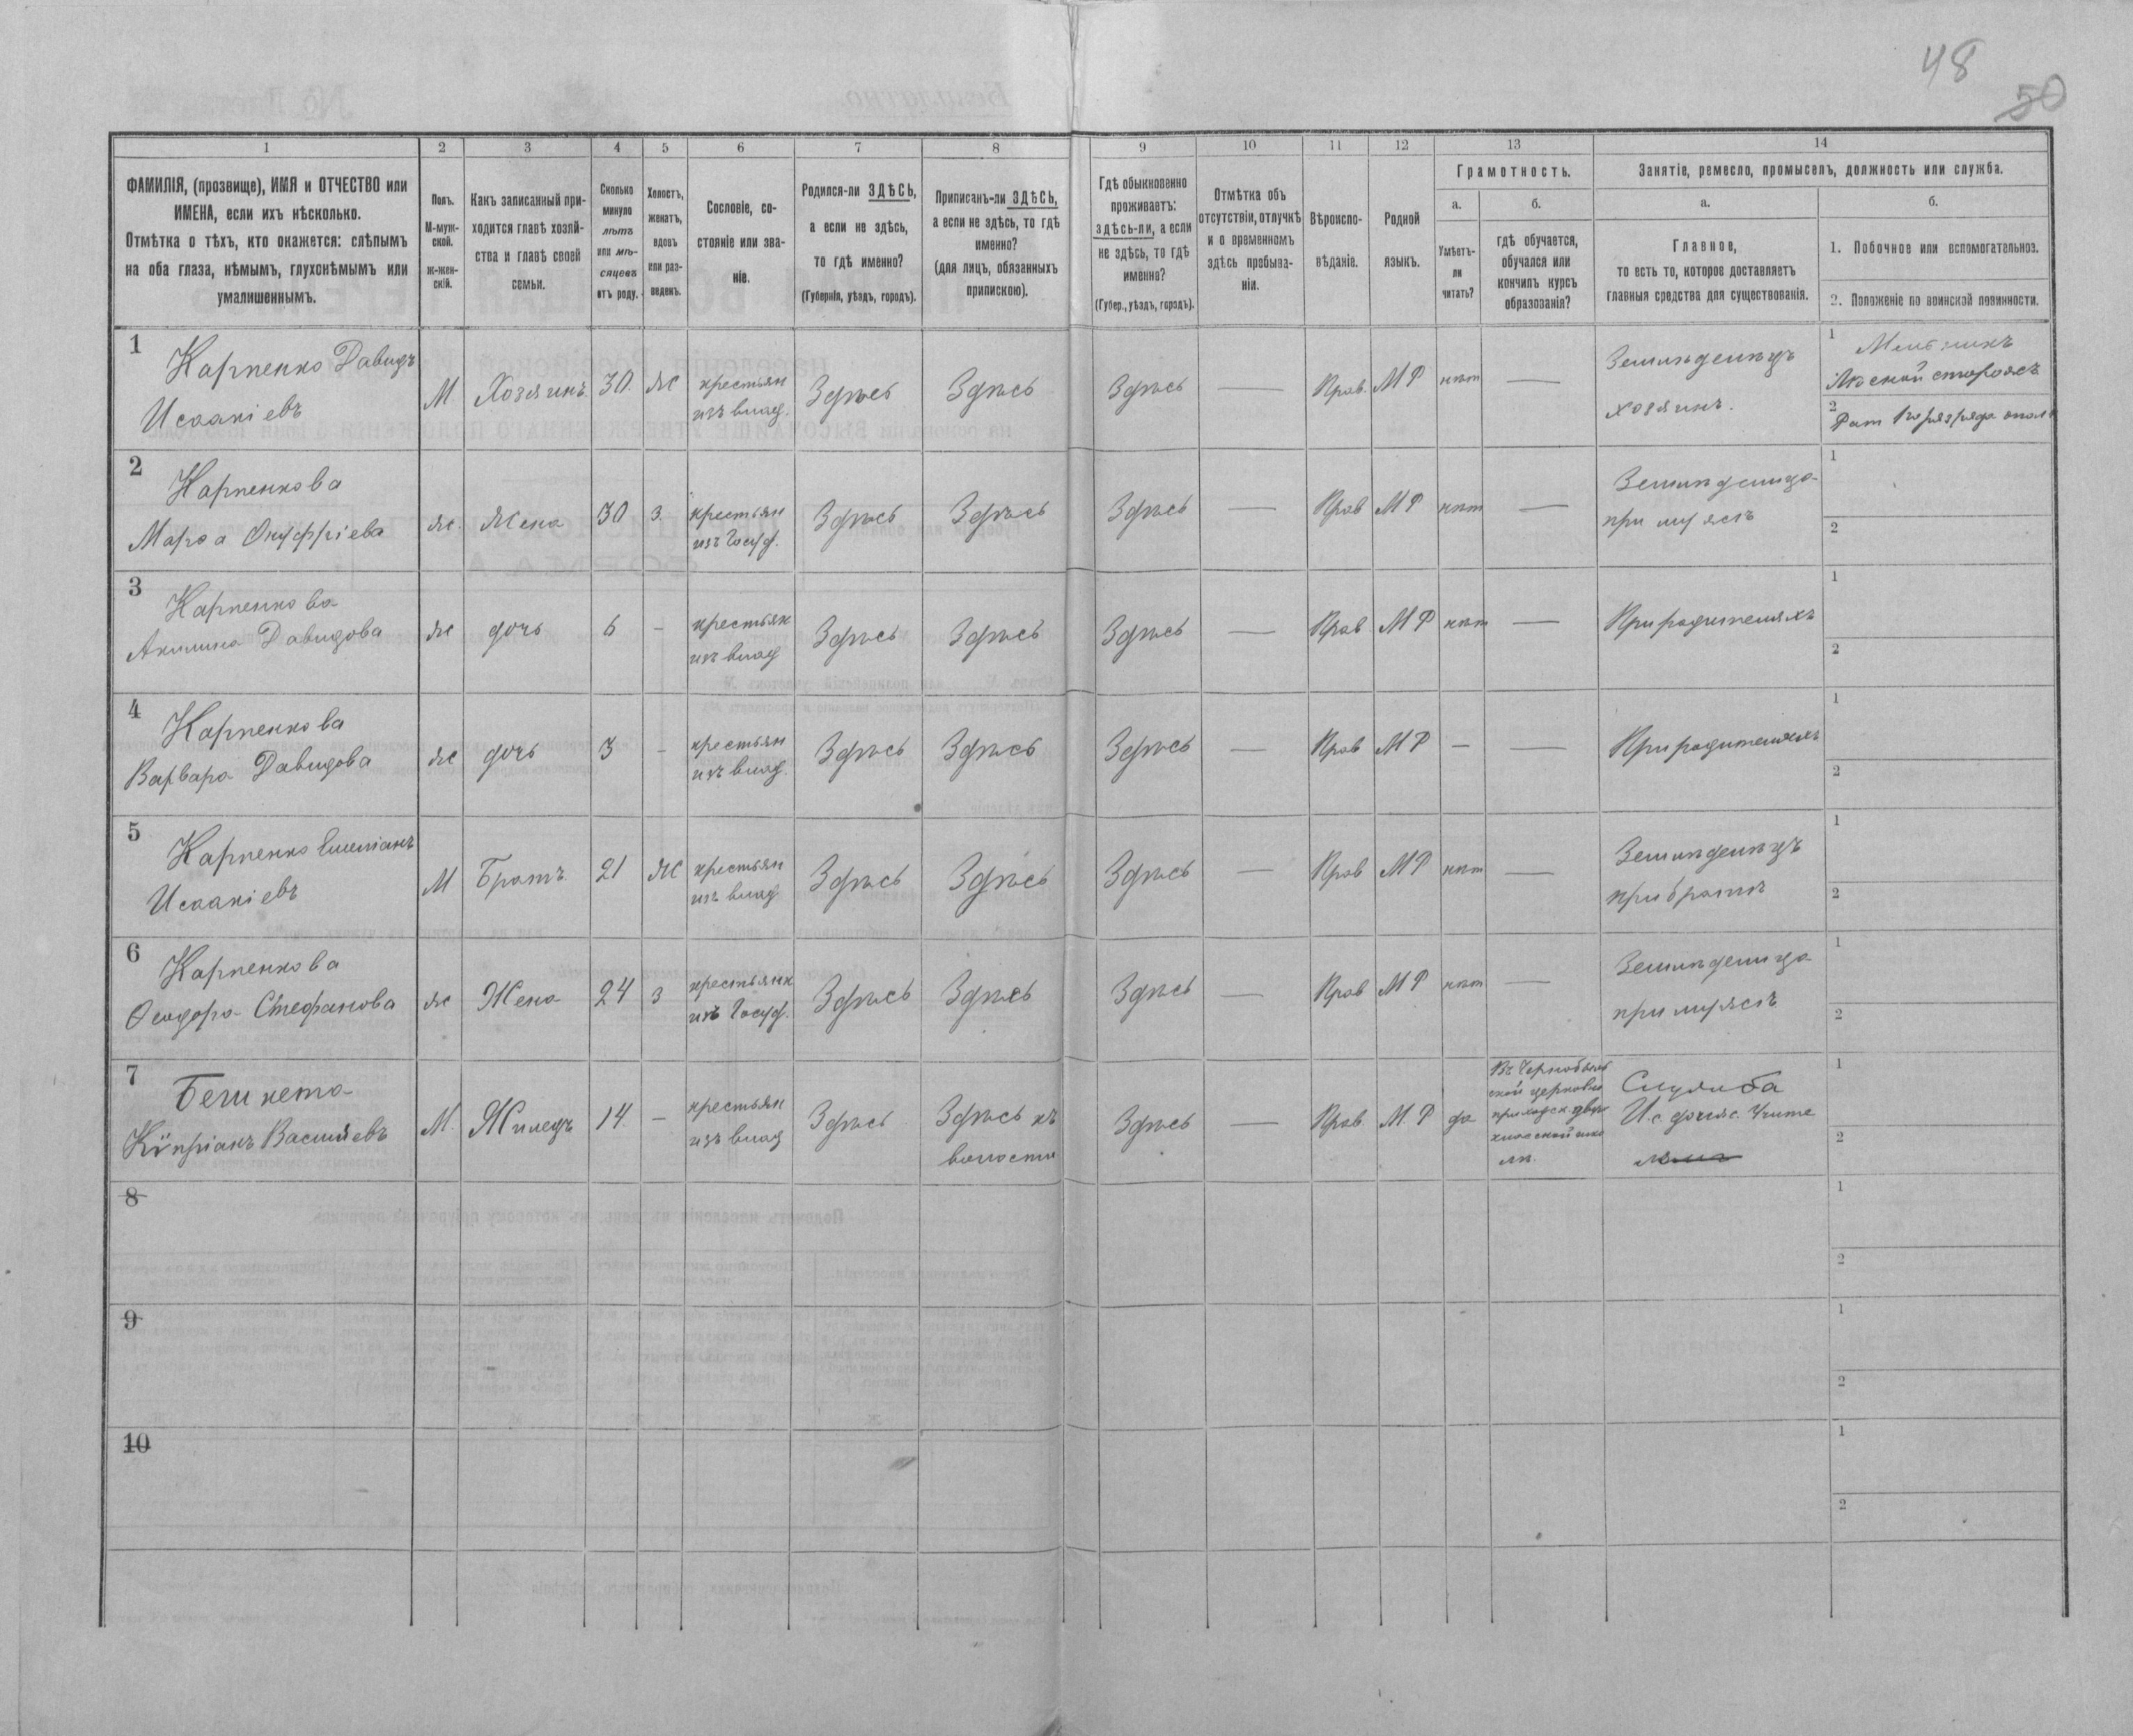 48
50
1 2 3 4 5 6 7 8 9 10 11 12 13 14
ФАМИЛІЯ, (прозвище), ИМЯ и ОТЧЕСТВО или
ИМЕНА, если ихъ нѣсколько.
Отмѣтка о тѣхъ, кто окажется: слѣпымъ
на оба глаза, нѣмымъ, глухонѣмымъ или
умалишеннымъ.
Полъ.
М-муж-
ской.
ж-жен-
скій.
Какъ записанный при-
ходится главѣ хозяй-
ства и главѣ своей
семьи.
Сколько
минуло
лѣтъ
или мѣ-
сяцевъ
отъ роду.
Холостъ,
женатъ,
вдовъ
или раз-
веденъ.
Сословіе, со-
стояніе или зва-
ніе.
Родился-ли ЗДѢСЬ,
а если не здѣсь,
то гдѣ именно?
(Губернія, уѣздъ, городъ).
Приписанъ-ли ЗДѢСЬ,
а если не здѣсь, то гдѣ
именно?
(для лицъ, обязанныхъ
припискою).
Гдѣ обыкновенно
проживаетъ:
здѣсь-ли, а если
не здѣсь, то гдѣ
именно?
(Губер., уѣздъ, городъ).
Отмѣтка объ
отсутствіи, отлучкѣ
и о временномъ
здѣсь пребыва-
ніи.
Вѣроиспо-
вѣданіе.
Родной
языкъ.
Грамотность.
а.
Умѣетъ-
ли
читать?
б.
гдѣ обучается,
обучался или
кончилъ курсъ
образованія?
Занятіе, ремесло, промыселъ, должность или служба.
а.
Главное,
то есть то, которое доставляетъ
главныя средства для существованія.
б.
1. Побочное или вспомогательное.
2. Положеніе по воинской повинности.
1
Карпенко Давидъ
Исаакіевъ
М
Хозяинъ
30.
Ж
крестьян
изъ влад.
Здѣсь
Здѣсь
Здѣсь
—
Прав.
М Р
нѣт
—
Земледѣлецъ
хозяинъ.
1
Мельникъ
Лѣсной сторожъ
2
Рат 1го разряда опол
2
Карпенкова
Марѳа Онуфріева
ж.
Жена
30
З.
крестьян
изъ Госуд.
Здѣсь
Здѣсь
Здѣсь
—
Прав
М Р
нѣт
—
Земледѣлица
при мужѣ
1
2
3
Карпенкова
Акилина Давидова
ж
дочь
6
–
крестьян
изъ влад
Здѣсь
Здѣсь
Здѣсь
—
Прав
М Р
нѣт
—
При родителяхъ
1
2
4
Карпенкова
Варвара Давидова
ж
дочь
3
–
крестьян
изъ влад.
Здѣсь
Здѣсь
Здѣсь
—
Прав
М Р
—
—
При родителяхъ
1
2
5
Карпенко Емеліанъ
Исаакіевъ
М
Братъ
21
Ж
крестьян
изъ влад
Здѣсь
Здѣсь
Здѣсь
—
Прав
М Р
нѣт
—
Земледѣлецъ
при братѣ
1
2
6
Карпенкова
Ѳеодора Стефанова
ж
Жена
24
З
крестьянк
изъ Госуд.
Здѣсь
Здѣсь
Здѣсь
—
Прав
М Р
нѣт
—
Земледѣлица
при мужѣ
1
2
7
Кѵпріанъ Васильевъ
М.
Жилецъ
14.
—
крестьян
изъ влад
Здѣсь
Здѣсь къ
волости
Здѣсь
—
Прав.
М. Р
да
ской церковно
приходск. двух
класной шко
лѣ.
Служба
1
2
8
1
2
9
1
2
10
1
2